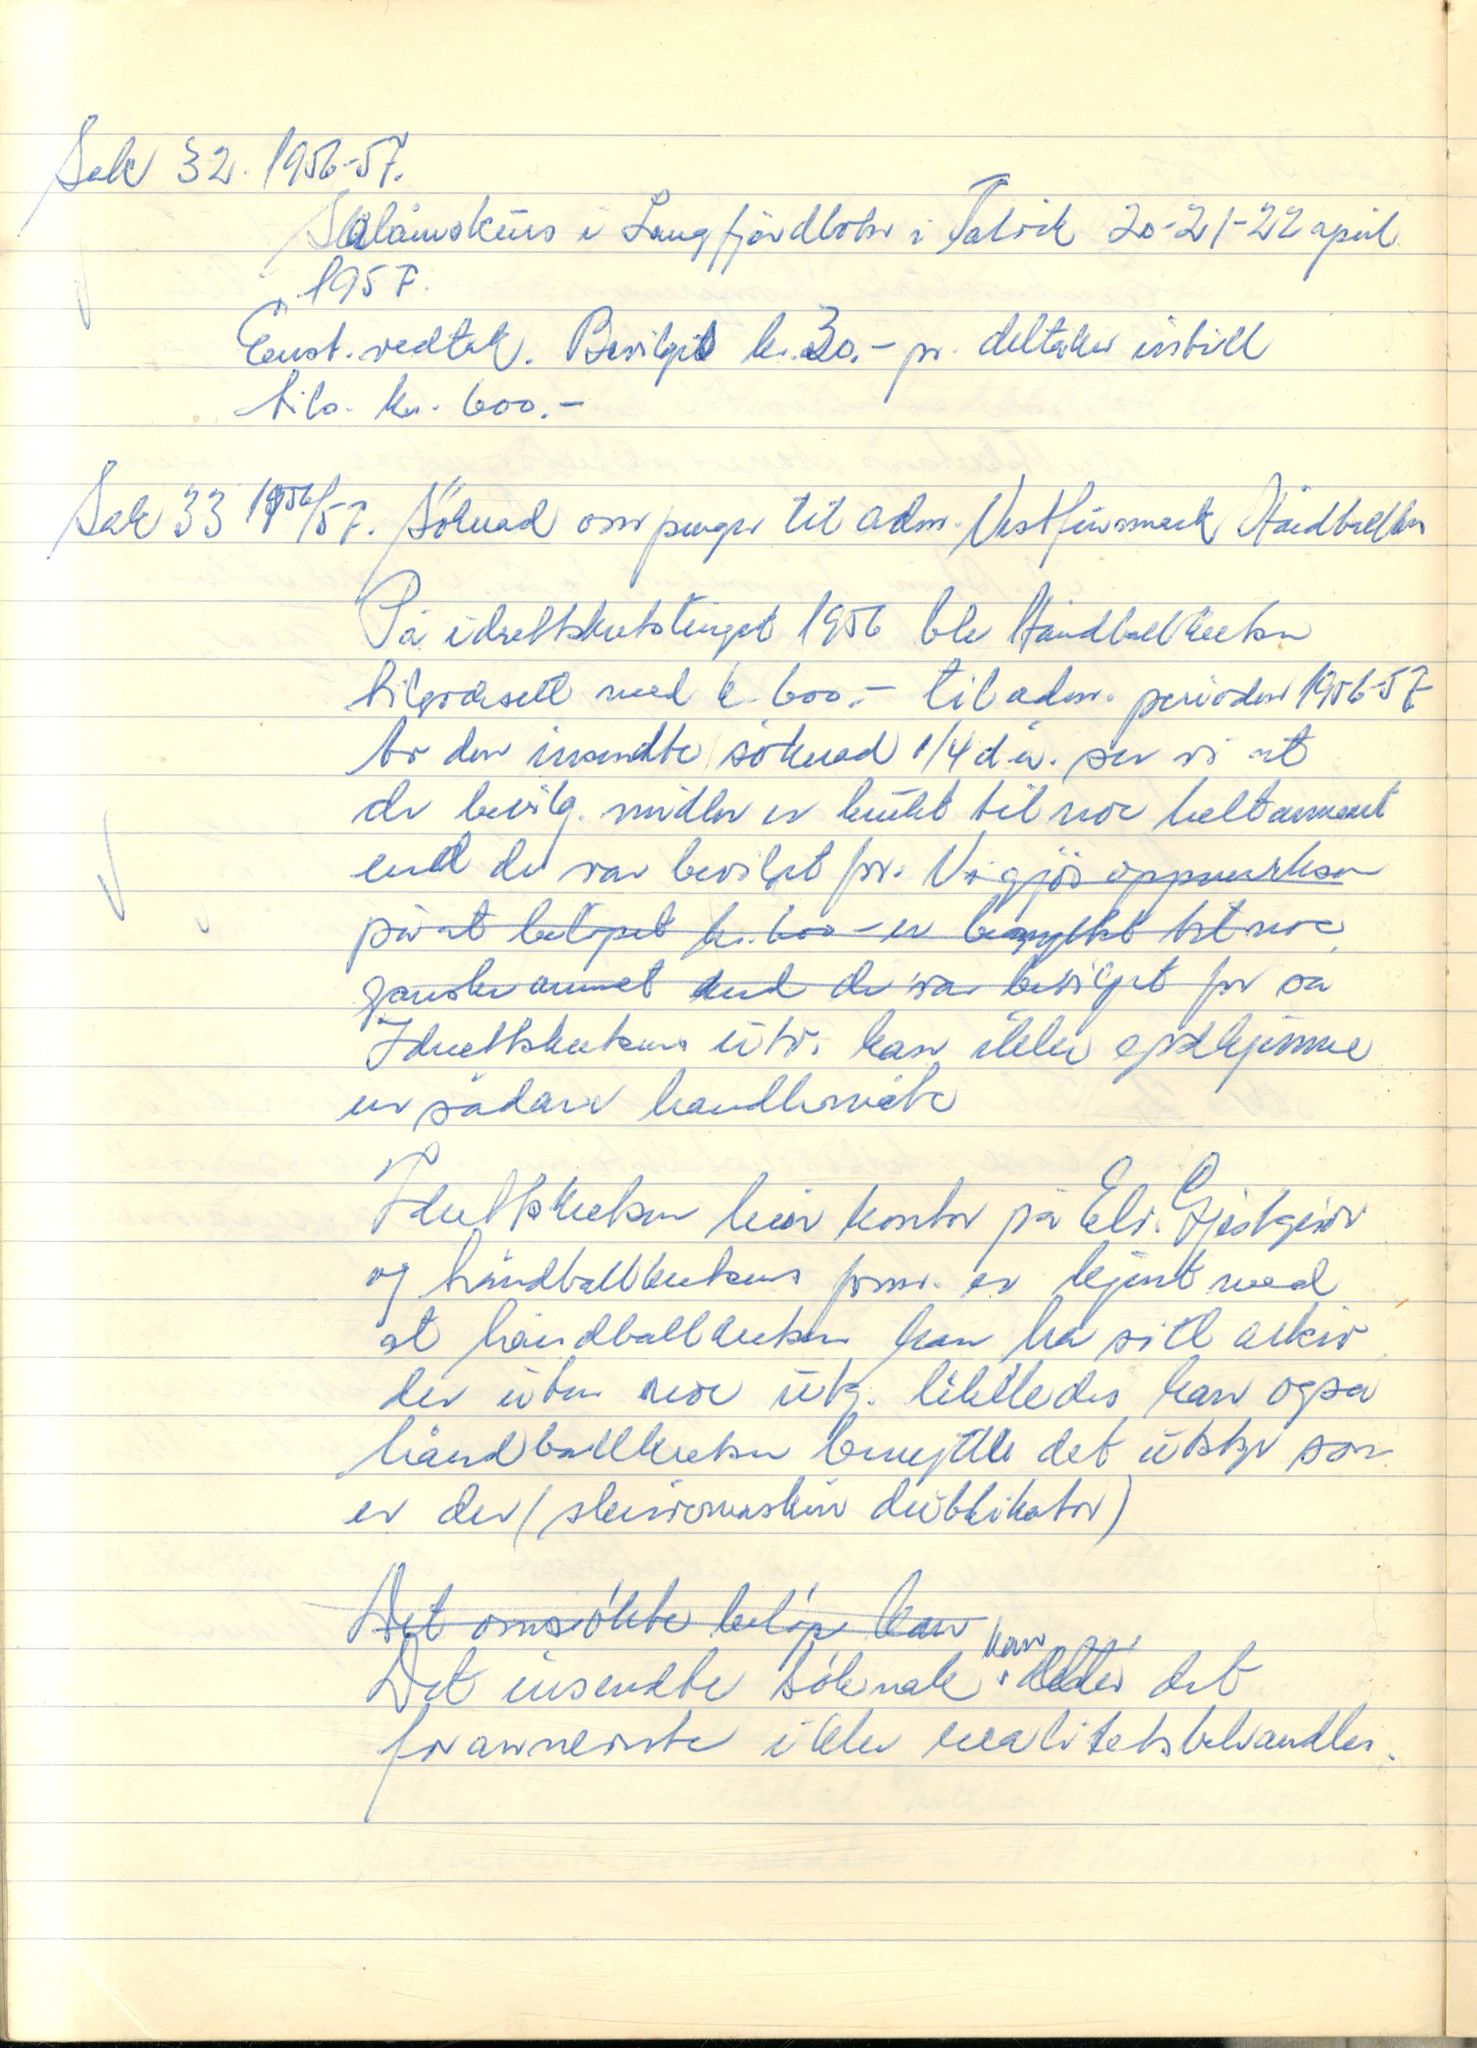 Sak 32. 1956-57.
Slalåmskurs i Langfjordbotn i Talvik 20-21-22 april
1957.
Enst. vedtak. Bevilget kr. 30.- pr. deltaker intill
tils. kr. 600.-
Sak 33 1956/57. Söknad om penger til adm. Vestfinnmark Håndballkr
På idrettskretstinget 1956 ble Håndballkretsen
tilgodesett med kr. 600.- til adm. perioden 1956-57
av den innsendte söknad 1/4 d.å. ser vi at
de bevilg. midler er brukt til noe helt annent
end de var bevilget for. Vi gjör oppmerksom
på at belöpet kr. 600 - er benyttet til noe
ganske annet end de var bevilget for så
Idrettskretsens utv. kan ikke godkjenne
en sådan handlemåte
Idrettskretsen leier kontor på Elv. Gjestgiveri
og håndballkretsens form. er kjent med
at håndballkretsen kan ha sitt arkiv
der uten noe utg. likeledes kan også
håndballkretsen benytte det utstyr som
er der (skrivemaskin dublikator)
Det omsökte belöp kan
Det innsendte söknak kan etter det
forannevnte ikke realitetsbehandles.